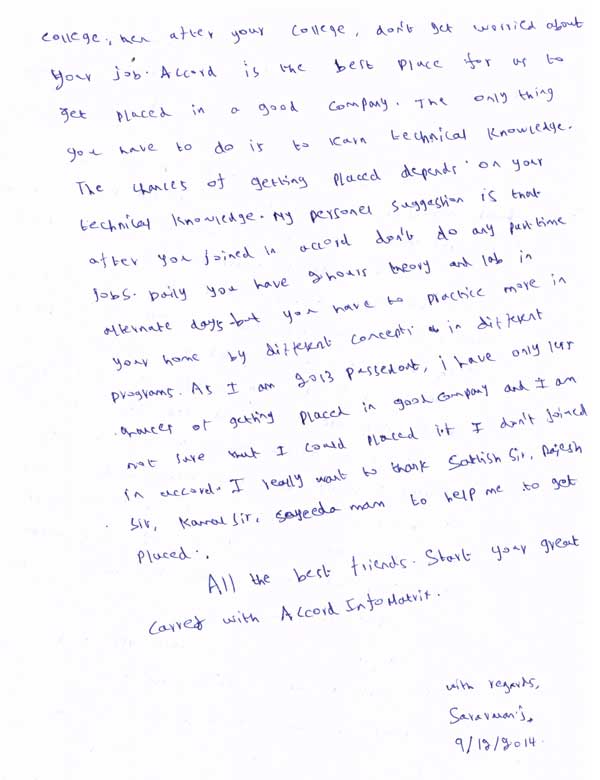 college, then after your college, don't get worried about
your job. Accord is the best place for us to
get placed in a good company. The only thing
you have to do is to learn technical knowledge.
The chances of getting placed depends on your
technical knowledge. My personel suggestion is that
after you joined in accord don't do any parttime
jobs. Daily you have 2hours theory and lab in
alternate days but you have to practice more in
your home by different concepts in different
programs. As I am 2013 passedout, i have only less
chances of getting placed in good company and I am
not sure that I could placed if I don't joined
in accord. I really want to thank Sathish Sir, Rajesh
Sir, Kamal Sir, Sayeeda mam to help me to get
placed..
All the best friends. Start your great
carrer with Accord InfoMatrix.
with regards,
Saravanan.J,
9/12/2014.